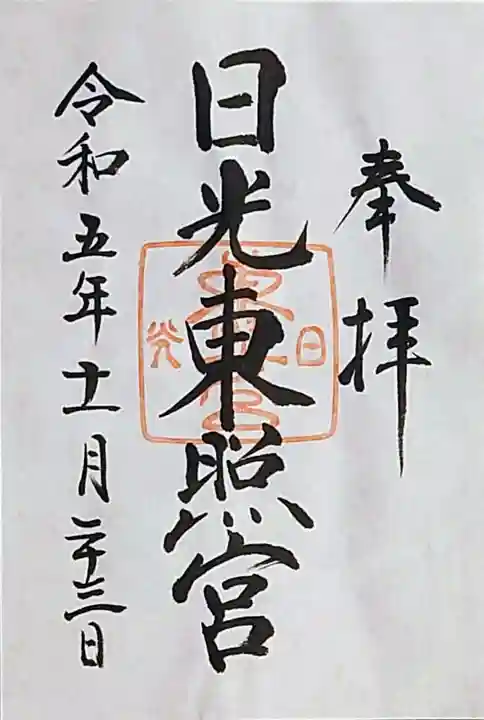 奉拝
日光東照宮
令和五年十一月二十三日
日光